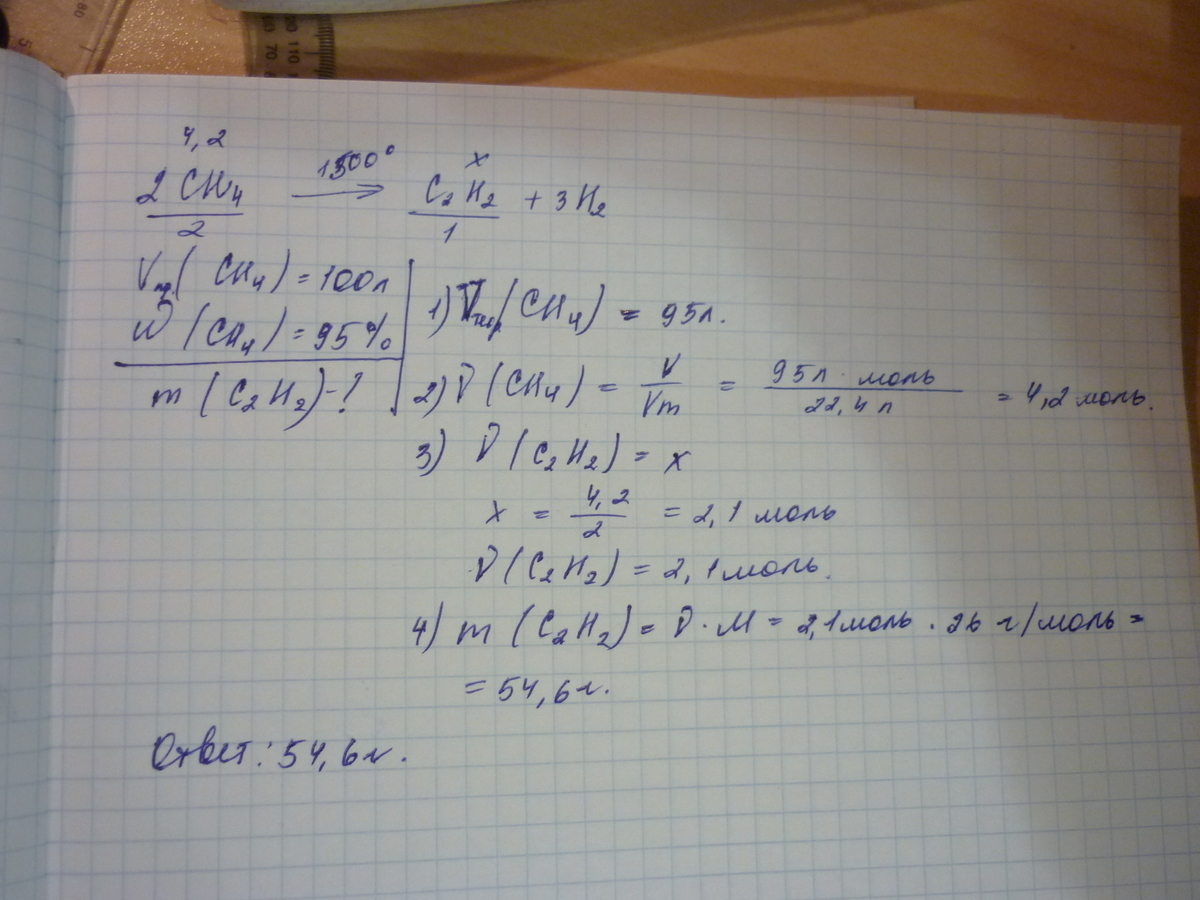 4,2
1500° x
2 CH₄ ⟶ C₂H₂ + 3H₂
2 1
V пр.( CH₄ ) = 100л
W (CH₄) = 95%
m ( C₂H₂ ) - ?
1) V (CH₄) = 95л.
2) ν (CH₄) = V/Vm = 95л · моль/22,4 л = 4,2 моль.
3) ν ( C₂H₂ ) = x
x = 4,2/2 = 2,1 моль
ν ( C₂H₂ ) = 2,1 моль.
4) m ( C₂H₂ ) = ν · M = 2,1 моль · 26 г/моль =
= 54,6 г.
Ответ: 54,6 г.
5
80
20 110 1
70